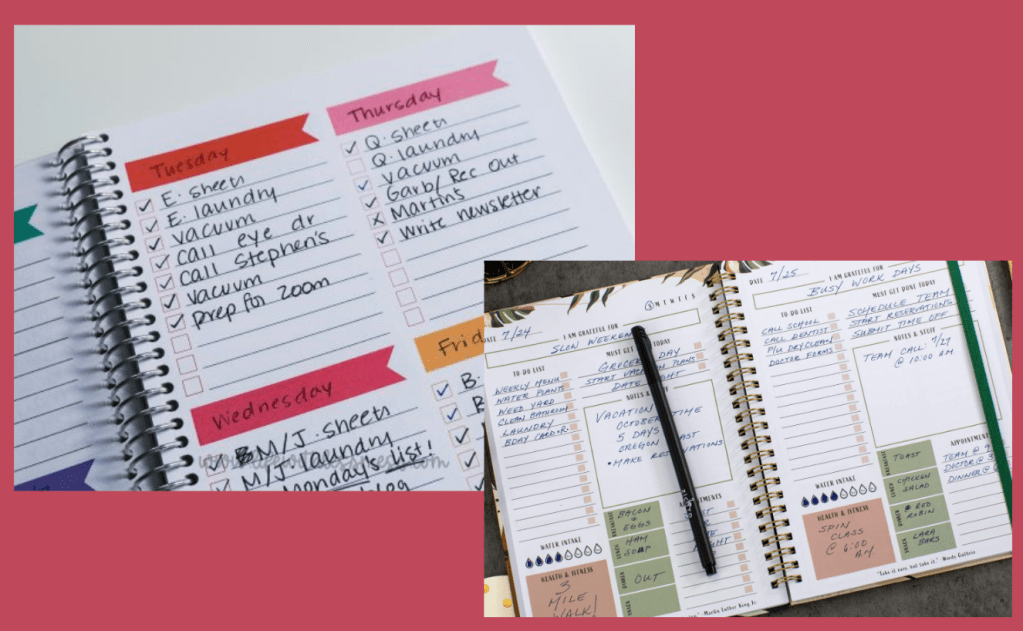 Tuesday
E. Sheets
E. laundry
vacuum
call eye dr
call Stephen's
vacuum
prep for zoom
Thursday
Q. Sheets
Q. laundry
vacuum
Garb/Rec Out
Martin's
Write newsletter
Wednesday
BM/J. Sheets
M/J laundry
Monday's list!
blog
Frid
B.
B
DATE 7/24
I AM GRATEFUL FOR
SLOW WEEKEND
MUST GET DONE TODAY
GROCERY DAY
START VACATION PLANS
DATE NIGHT
TO DO LIST
WEEKLY MENU
WATER PLANTS
WEED YARD
CLEAN BATHROOM
LAUNDRY
BDAY CARD
NOTES & STUFF
VACATION TIME
OCTOBER
5 DAYS
OREGON COAST
• MAKE RESERVATIONS
WATER INTAKE
HEALTH & FITNESS
3
MILE
WALK!
BREAKFAST
BACON
&
EGGS
LUNCH
HAM
SOUP
DINNER
OUT
SNACKS
APPOINTMENTS
NIGHT
- Martin Luther King Jr.
M T W T F S S
DATE 7/25
I AM GRATEFUL FOR
BUSY WORK DAYS
MUST GET DONE TODAY
SCHEDULE TEAM
START RESERVATIONS
SUBMIT TIME OFF
TO DO LIST
CALL SCHOOL
CALL DENTIST
P/U DRYCLEAN
DOCTOR FORMS
NOTES & STUFF
TEAM CALL: 7/27
@ 10:00 AM
WATER INTAKE
HEALTH & FITNESS
SPIN
CLASS
@ 6:00
AM
BREAKFAST
TOAST
LUNCH
CHICKEN
SALAD
DINNER
RED
ROBIN
SNACKS
LARA
BARS
APPOINTMEN
TEAM @ 9
DOCTOR @
DINNER @
"Take it easy, but take it." - Woody Guthrie